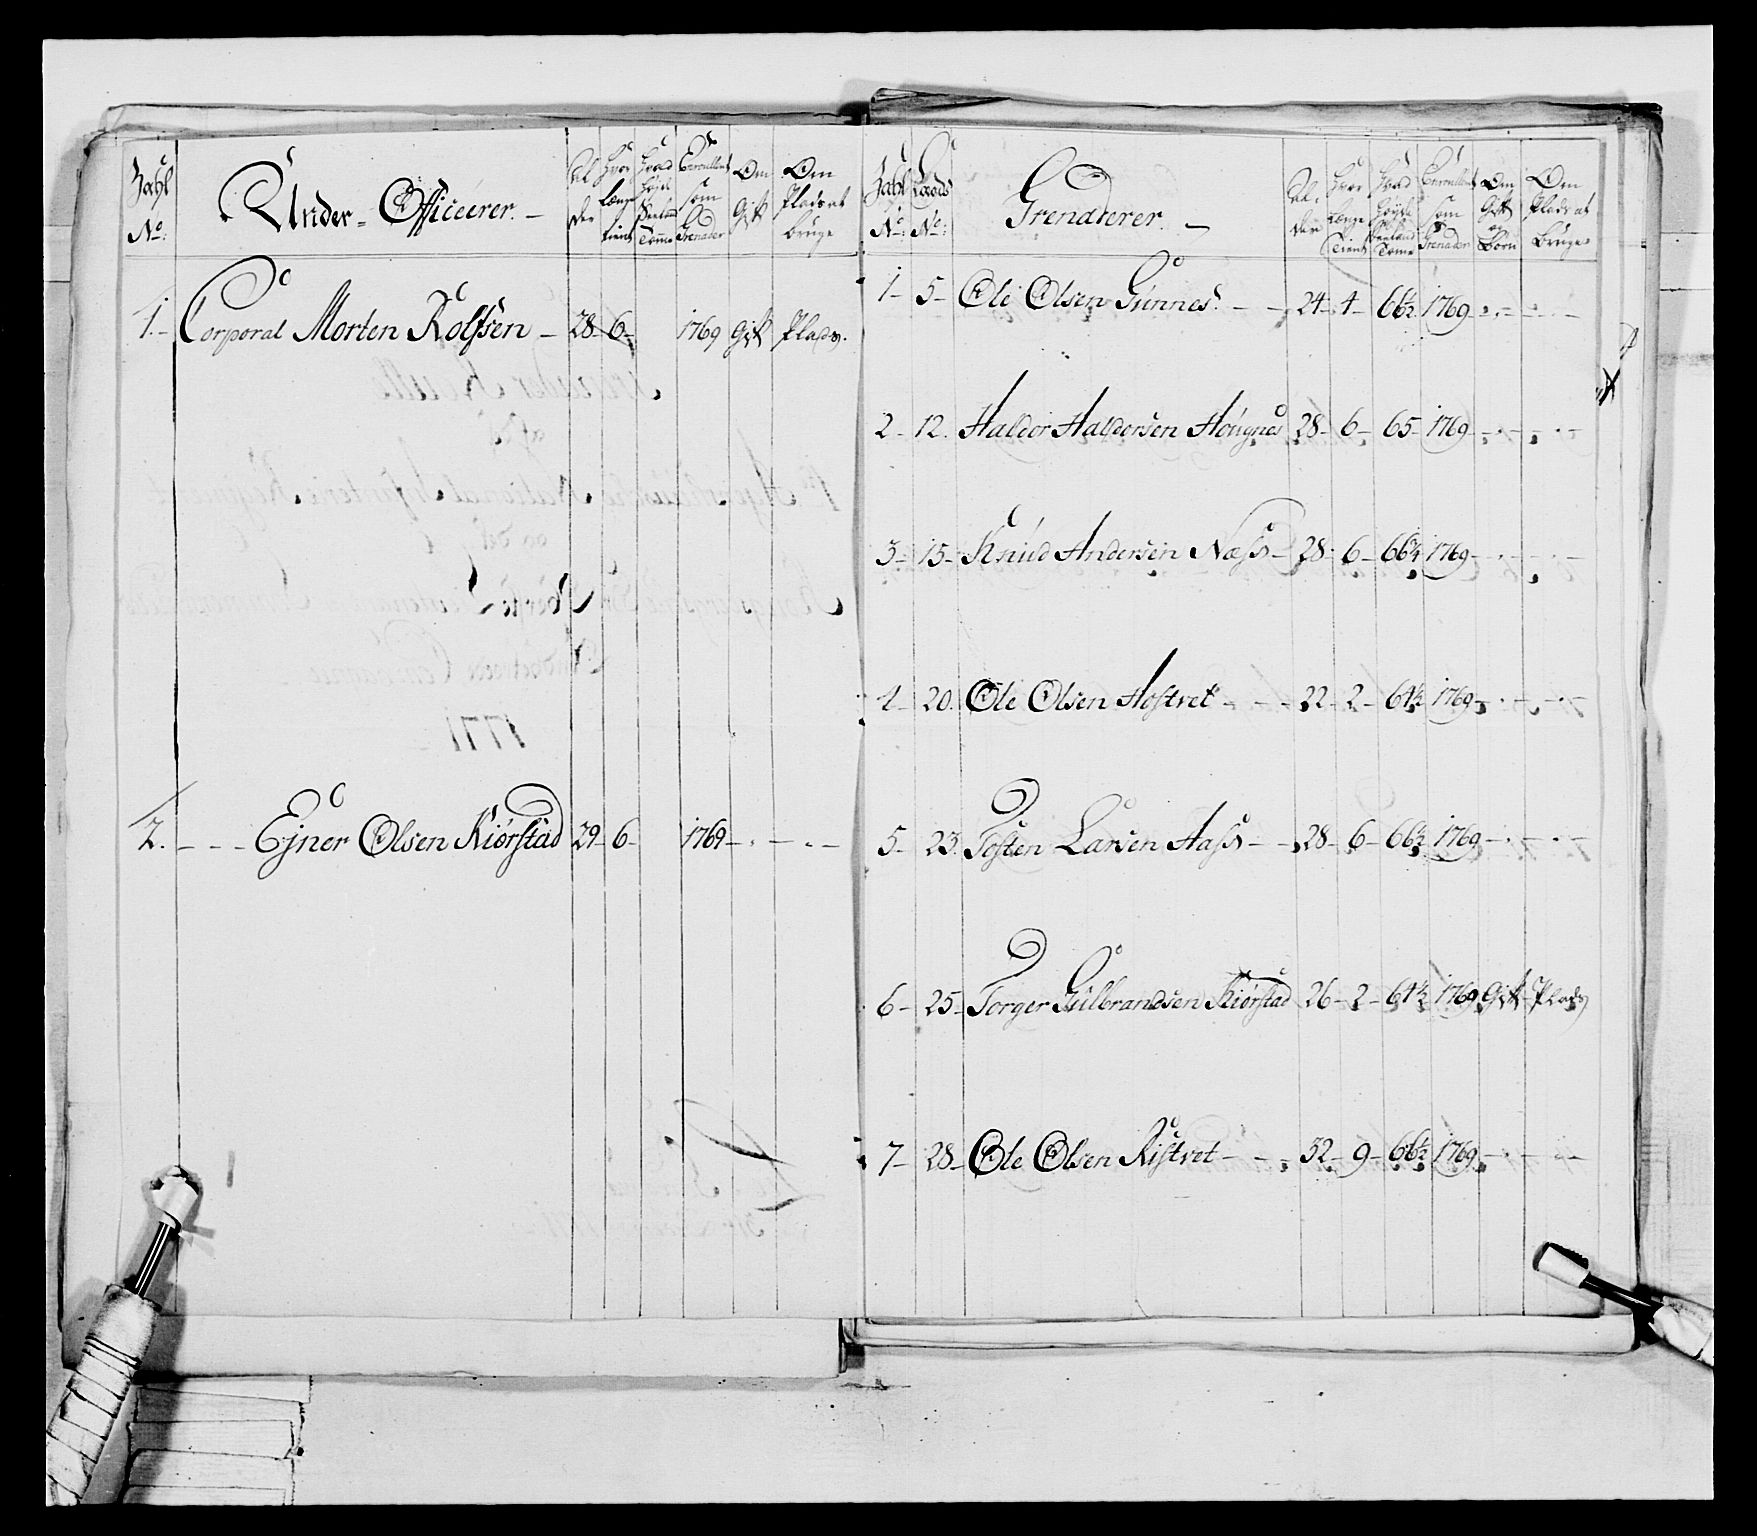 Zahl No: Under-Officeèrer. Al der Hvor længe tient Enroullert som Grenader Om Gift Om Plads at bruge
1. Corporal Morten Rolfsen 28 6 1769 Gift Plads.
2. Ejner Olsen Kiørstad 29 6 1769
Zahl No: Lægds No: Grenaderer. Al der Hvor længe Tient Hvad Høyde Tomme Enroullert som Grenader Om Gift og Børn Om Plads at Bruge
1 5 Ole Olsen Gúnnes 24 4 66½ 1769
2 12. Haldor Haldorsen Hougnes 28 6 65 1769
3 15 Knúd Andersen Næss 28 6 66¾ 1769
4 20. Ole Olsen Hostvet 22 2 64½ 1769
5 23. Tosten Larsen Aass 28 6 66½ 1769
6 25 Torger Gúlbrandsen Kiørstad 26 2 64½ 1769 Gift Plads
7 28 Ole Olsen Kistvet 32 9 66½ 1769